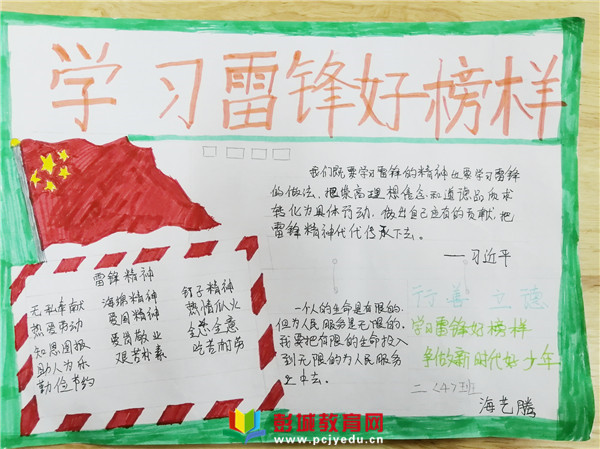 学习雷锋好榜样
我们既要学习雷锋的精神也要学习雷锋
的做法、把崇高理想信念和道德品质追求
转化为具体行动，做出自己应有的贡献，把
雷锋精神代代传承下去。
——习近平
雷锋精神
无私奉献
热爱劳动
知恩图报
助人为乐
勤俭节约
海绵精神
爱国精神
爱岗敬业
艰苦朴素
钉子精神
热情似火
全心全意
吃苦耐劳
一个人的生命是有限的,
但为人民服务是无限的。
我要把有限的生命投入
到无限的为人民服务
之中去。
行善立德
学习雷锋好榜样
争做新时代好少年
二〈4〉班
海艺腾
彭城教育网
www.pcjyedu.cn